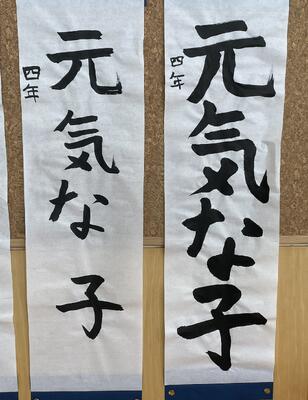 元気な子
四年
元気な子
四年